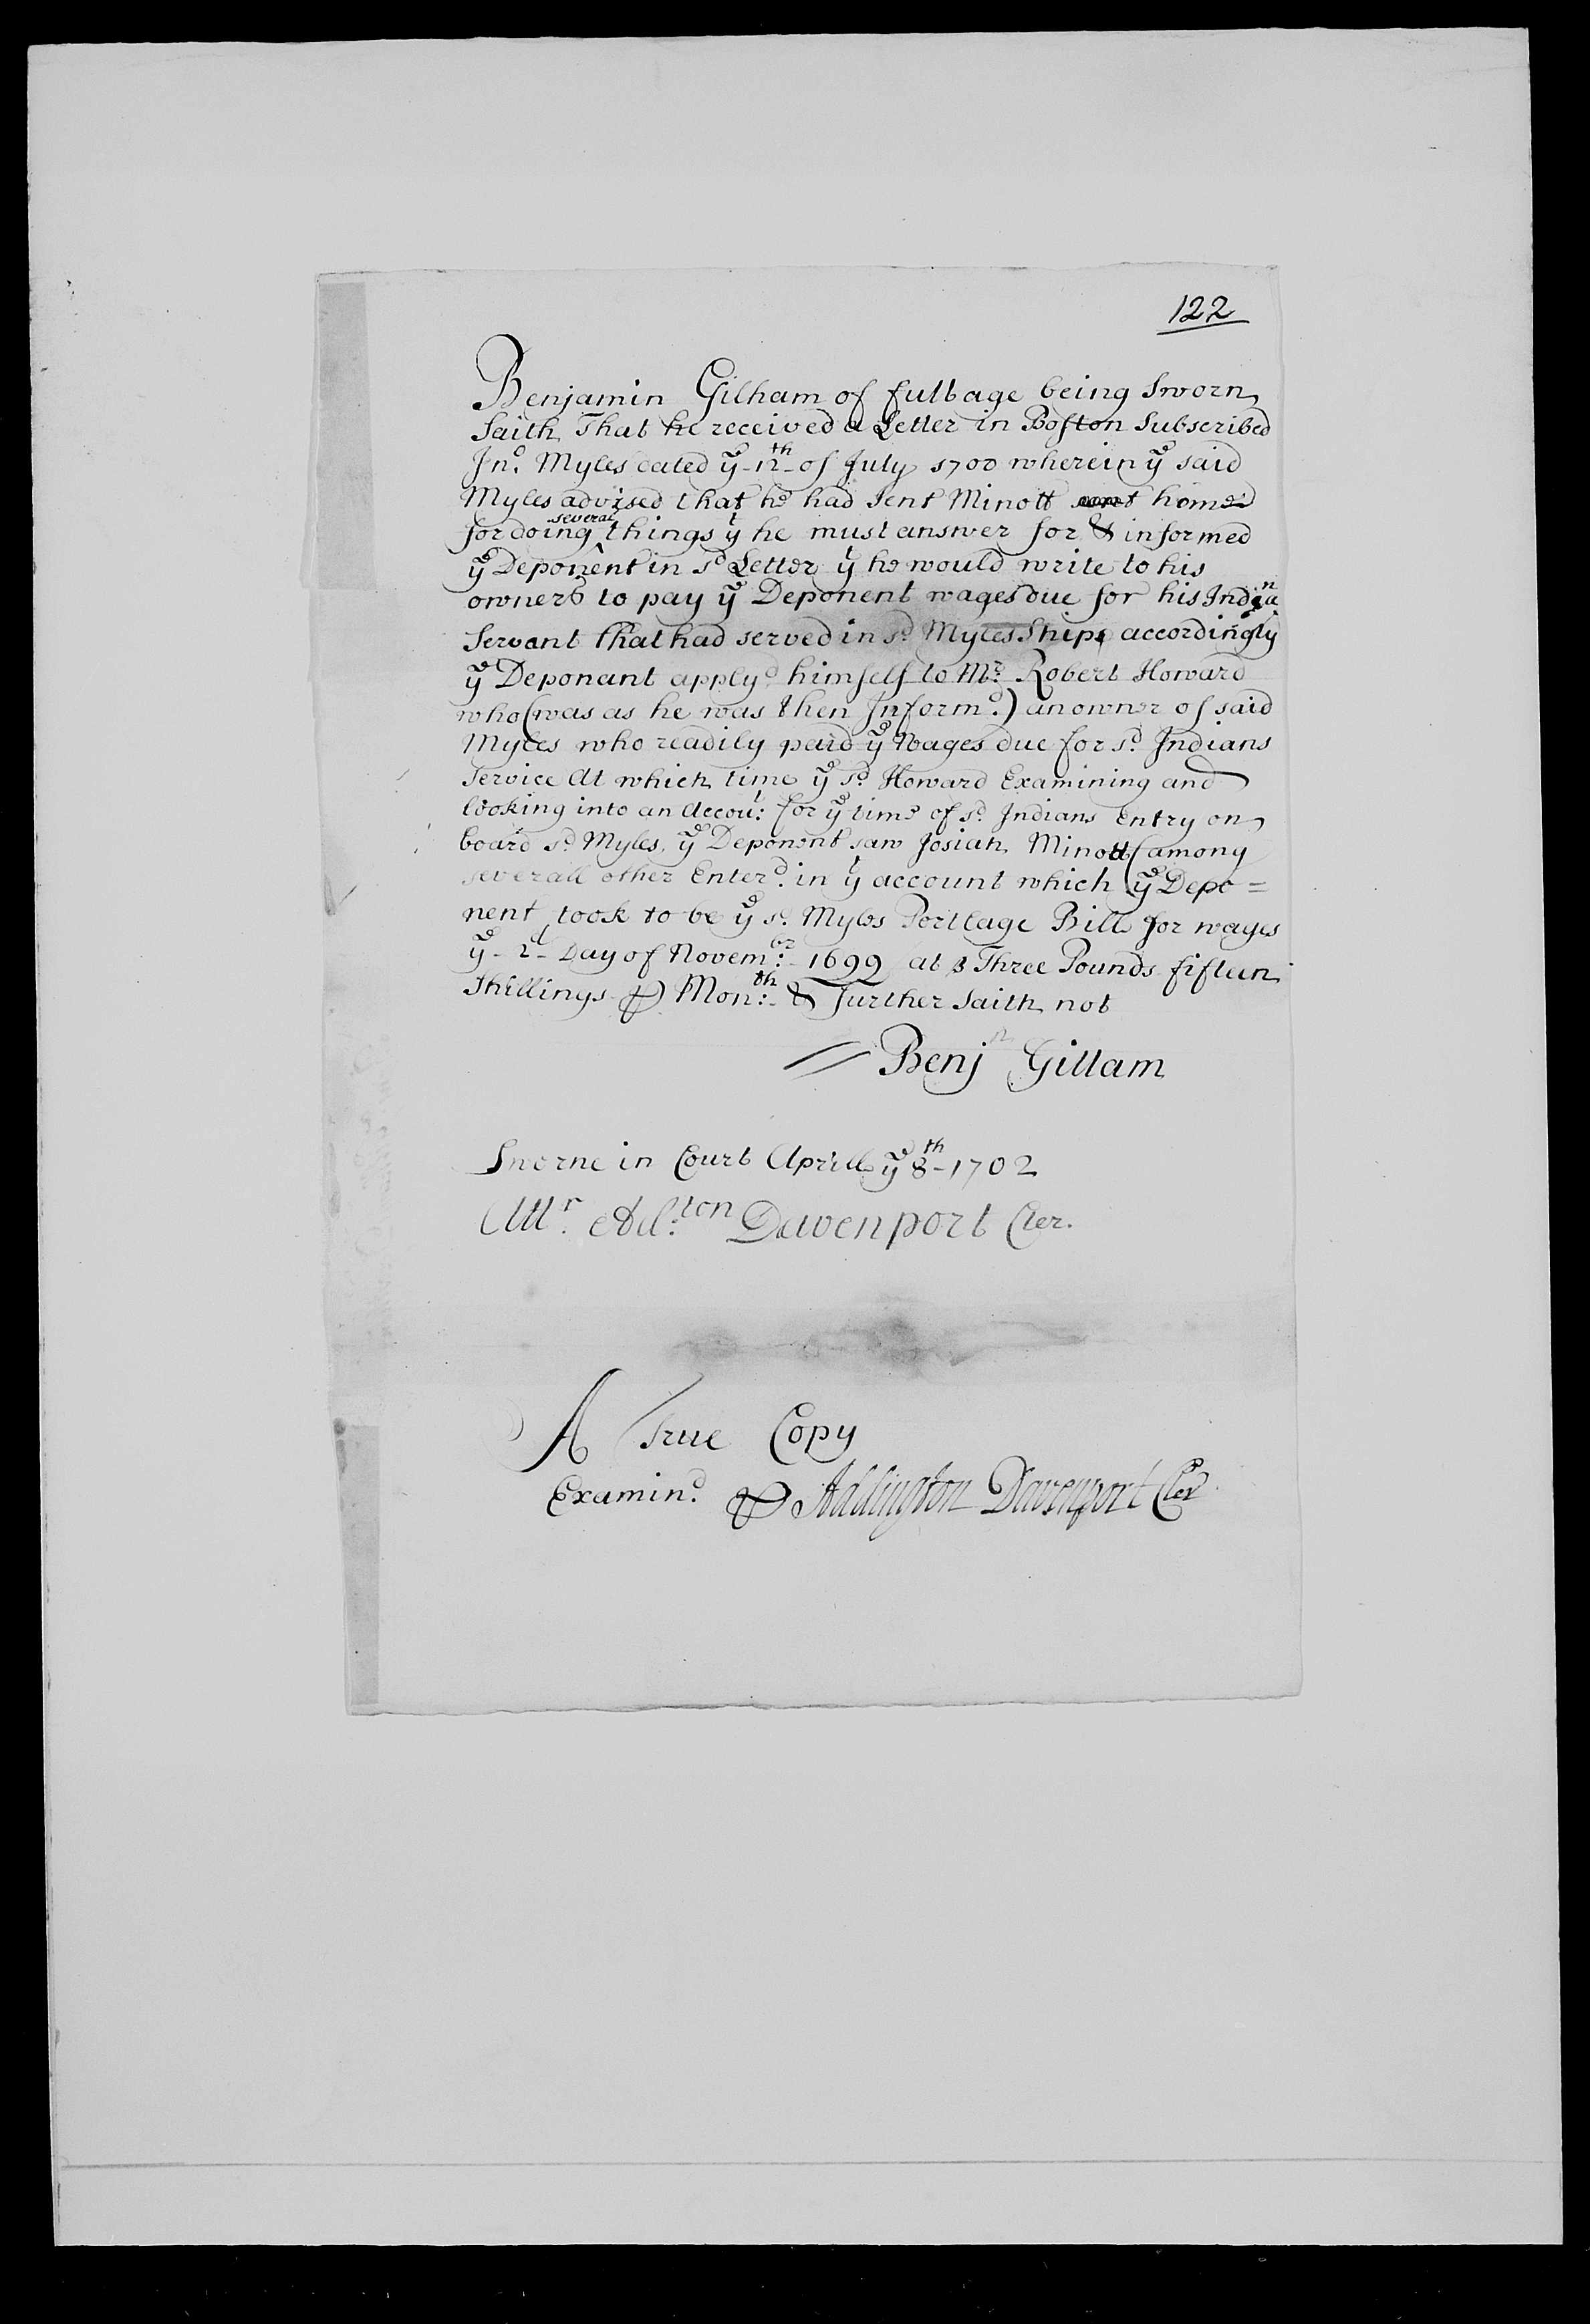 122
Benjamin Gilham of full age being Sworn
Saith That he received a Letter in Boston Subscribed
Jno. Myles dated ye 12th of July 1700 wherein ye said
Myles advised that he had Sent Minott home
for doing several things yt he must answer for & informed
ye Deponent in sd Letter yt he would write to his
owners to pay ye Deponent wages due for his Indian
Servant that had served in sd Myles Ship accordingly
ye Deponant applyd himself to Mr. Robert Howard
who (was as he was then Informd.) an owner of said
Myles who readily paid ye Wages due for sd. Indians
Service At which time ye sd. Howard Examining and
looking into an Accout: for ye time of sd. Indians Entry on
board sd Myles, ye Deponent saw Josiah Minott (among
severall other Enterd. in yt account which ye Depo=
nent took to be ye sd. Myles Portlage Bill for wages
ye - 2d - Day of Novembr: 1699 at Three Pounds fifteen
Shillings ⅌ Month: & further Saith not
Benjn Gillam
Sworne in Court Aprill ye 8th - 1702
Attr. Add:ton Davenport Cler.
A True Copy
Examind. ⅌ Addington Davenport Cler